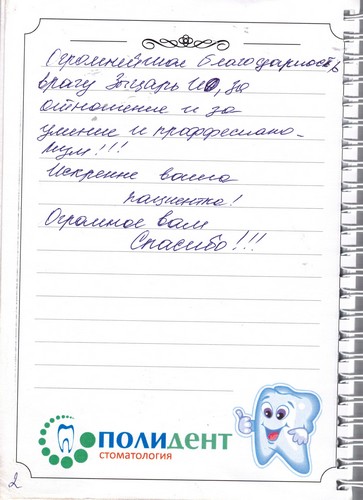 Огромнейшая благодарность
врачу Зыцарь И.О, за
отношение и за
умение и проффесиона-
лизм!!!
Искренне ваша
пациентка!
Огромное вам
Спасибо!!!
ПОЛИДЕНТ
СТОМАТОЛОГИЯ
2